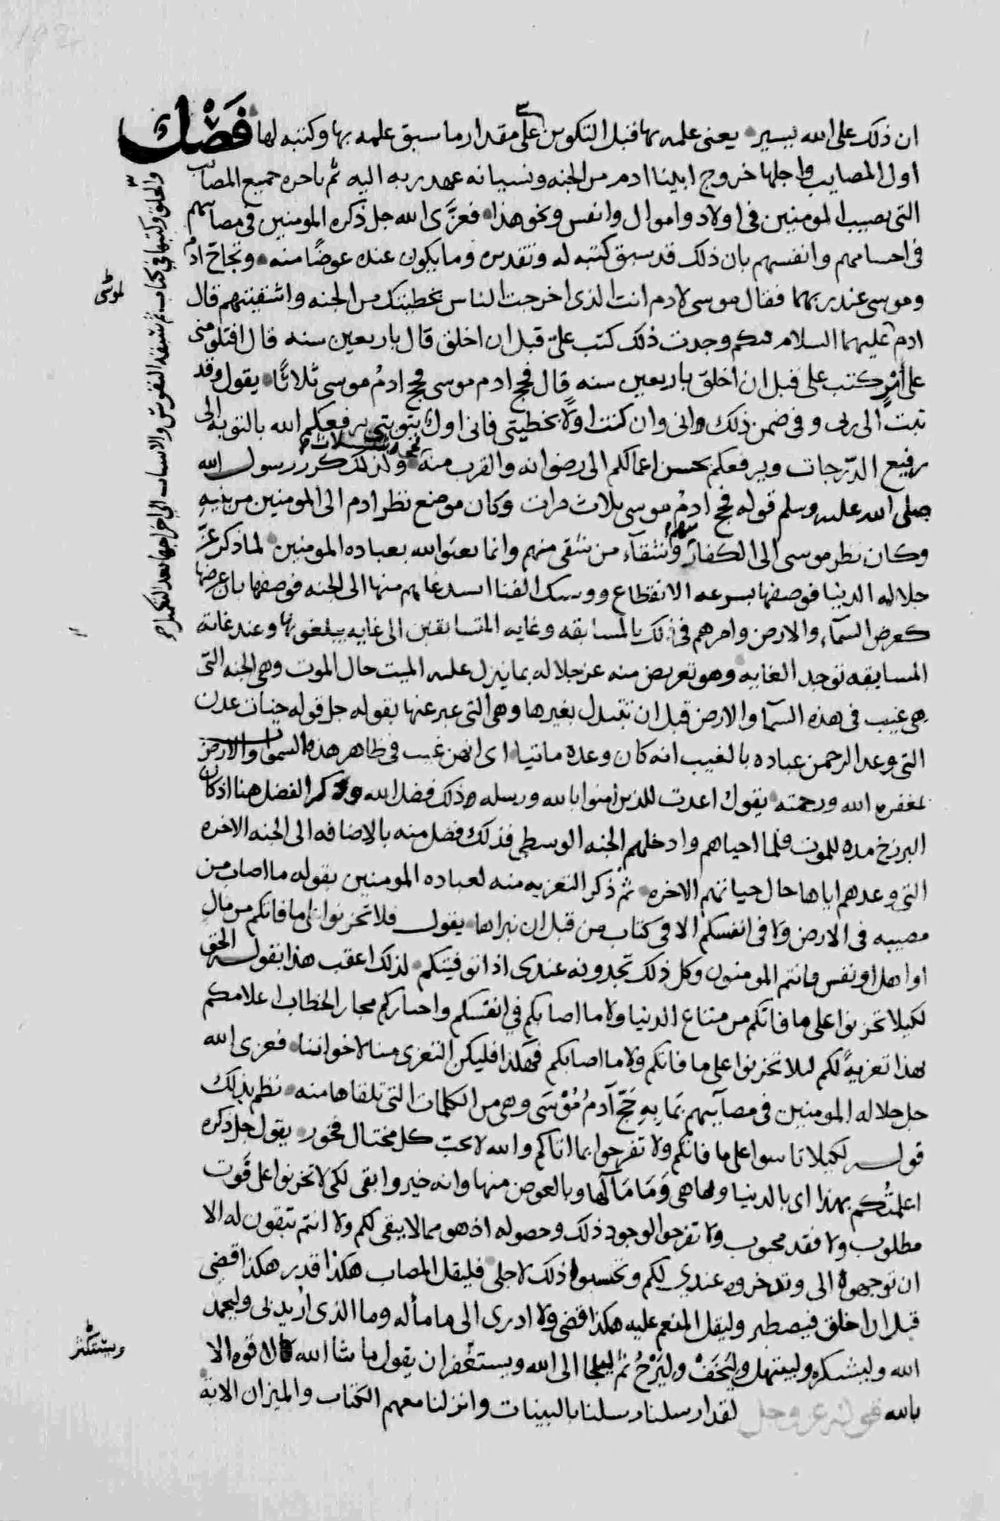 ان ذلك على الله يسير يعنى علمه بها قبل التكوين على مقدار ما سبق علمه بها وكتبه لها فصل
اول المصايب واجلها خروج ابينا ادم من الجنه ونسيانه عهد ربه اليه ثم باخره جميع المصائب
التى تصيب المومنين فى اولاد واموال وانفس ونحو هذا فعزى الله جل ذكره المومنين فى مصابهم
فى اجسامهم وانفسهم بان ذلك قد سبق كتبه له وتقدس وما يكون عنده عوضا منه وتحاج ادم
وموسى عند ربهما فقال موسى لادم انت الذى اخرجت الناس بخطيتك من الجنه واشقيتهم قال
ادم عليهما السلام فبكم وجدت ذلك كتب على قبل ان اخلق قال باربعين سنه قال افتلومنى
على امر كتب على قبل ان اخلق باربعين سنه قال فحج ادم موسى فحج ادم موسى ثلاثا يقول وقد
تبت الى ربى وفى ضمن ذلك وانى وان كنت اولا بخطيتى فانى اول بتوبتى يرفعكم الله بالتوبه الى
رفيع الدرجات ويرفعكم بحسن اعمالكم الى رضوانه والقرب منه ولذلك كرر رسول الله
صلى الله عليه وسلم قوله فحج ادم موسى ثلاث مرات وكان موضع نظر ادم الى المومنين من بنيه
وكان نظر موسى الى الكفار وانتقاء من شقى منهم وانما يعتوا الله بعباده المومنين لما ذكر عز
جلاله الدنيا فوصفها بسرعه الانقطاع ووشك الفنا اسدعاهم منها الى الجنه فوصفها بان عرضها
كعرض السماء والارض وامرهم فى ذلك بالمسابقه وغايه المتسابقين الى غايه يبلغونها وعند غاية
المسابقه توجد الغايه وهو تعريض منه عز جلاله بما ينزل عليه الميت حال الموت وهى الجنه التى
هى غيب فى هذه السما والارض قبل ان تتبدل بغيرها وهى التى عبر عنها بقوله جل قوله جنات عدن
التى وعد الرحمن عباده بالغيب انه كان وعده ماتيا اى انهن غيب فى ظاهر هذه السموات والارض
لمغفره الله ورحمته يقول اعدت للذين امنوا بالله ورسله ذلك فضل الله وذكر الفضل هنا اذ كان
البرزخ مده للموت فلما احياهم وادخلهم الجنه الوسطى فذلك فضل منه بالاضافه الى الجنه الاخره
التى وعدهم اياها حال حياتهم الاخره ثم ذكر التعزيه منه لعباده المومنين بقوله ما اصاب من
مصيبه فى الارض ولا فى انفسكم الا فى كتاب من قبل ان نبراها يقول فلا تحزنوا على ما فاتكم من مال
او اهل او نفس فانتم المومنون وكل ذلك تجدونه عندى اذا توفيتكم لذلك اعقب هذا بقوله الحق
لكيلا تحزنوا على ما فاتكم من متاع الدنيا ولا ما اصابكم فى انفسكم واحباركم مجاز الخطاب اعلامكم
بهذا تعزية لكم ليلا تحزنوا على ما فاتكم ولا ما اصابكم فهكذا فليكن التعزى منا لاخواننا فعزى الله
جل جلاله المومنين فى مصايبهم بما به حج آدم موسى وهى من الكلمات التى تلقاها منه نظم بذلك
قوله لكيلا تاسوا على ما فاتكم ولا تفرحوا بما اتاكم والله لا يحب كل مختال فخور يقول جل ذكره
اعلمتكم بهذا اى بالدنيا وما هى وما مآلها وبالعوض منها وانه خير وابقى لكى لا تحزنوا على فوت
مطلوب ولا فقد محبوب ولا تفرحوا لوجود ذلك وحصوله اذ هو مما لا يبقى لكم ولا انتم تبقون له الا
ان توجهوه الى وتدخروه عندى لكم وتحتسبوا ذلك لاجلى فليقل المصاب هكذا قدر هكذا قضى
قبل ان اخلق فيصطبر وليقل المنعم عليه هكذا قضى ولا ادرى الى ما مآله وما الذى اريد بى وليحمد
الله وليشكره وليبتهل وليخف وليرج ثم ليلجا الى الله ويستغفر ان يقول ما شا الله لا قوه الا
بالله قوله عز وجل لقد ارسلنا رسلنا بالبينات وانزلنا معهم الكتاب والميزان الايه